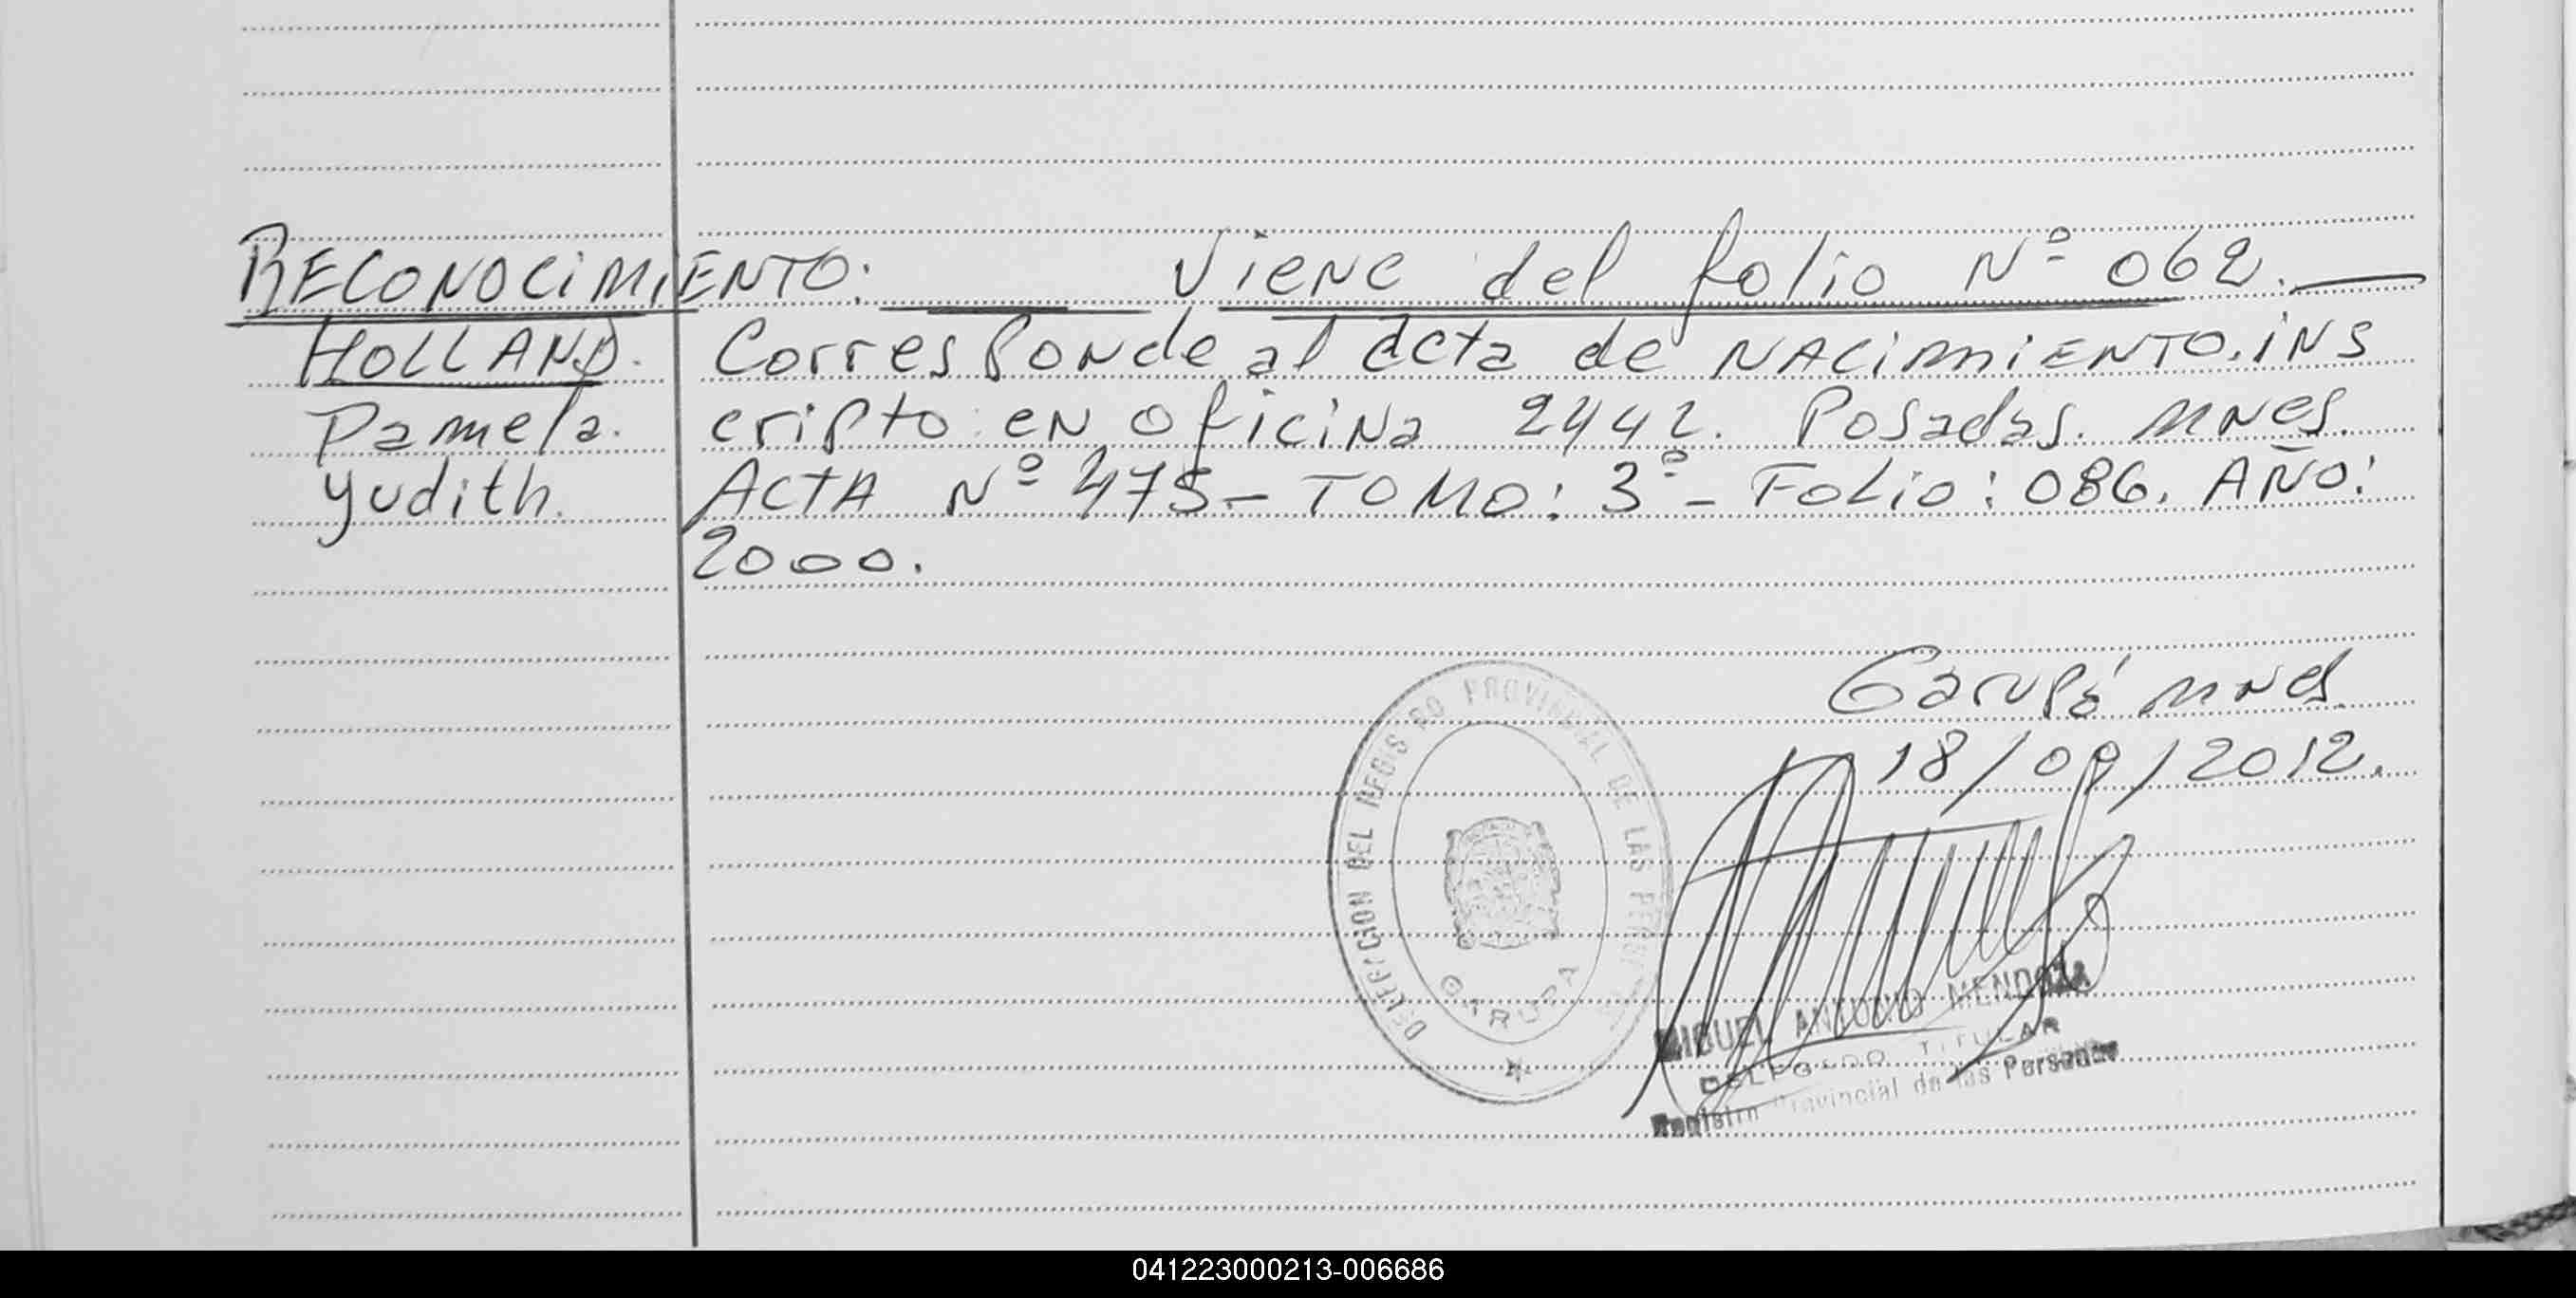 RECONOCIMIENTO: Viene del folio Nº 062.
HOLLAND. Corresponde al acta de NACIMIENTO. iNS
Pamela. cripto en oficina 2442. Posadas. MNes.
Yudith. ACTA Nº 475 - TOMO: 3º - Folio: 086. AÑO:
2000.
Garupá MNes.
18/09/2012.
DELEGACION DEL REGISTRO PROVINCIAL DE LAS PERSONAS
GARUPA
MIGUEL ANTONIO MENDOZA
DELEGADO TITULAR
Registro Provincial de las Personas
041223000213-006686